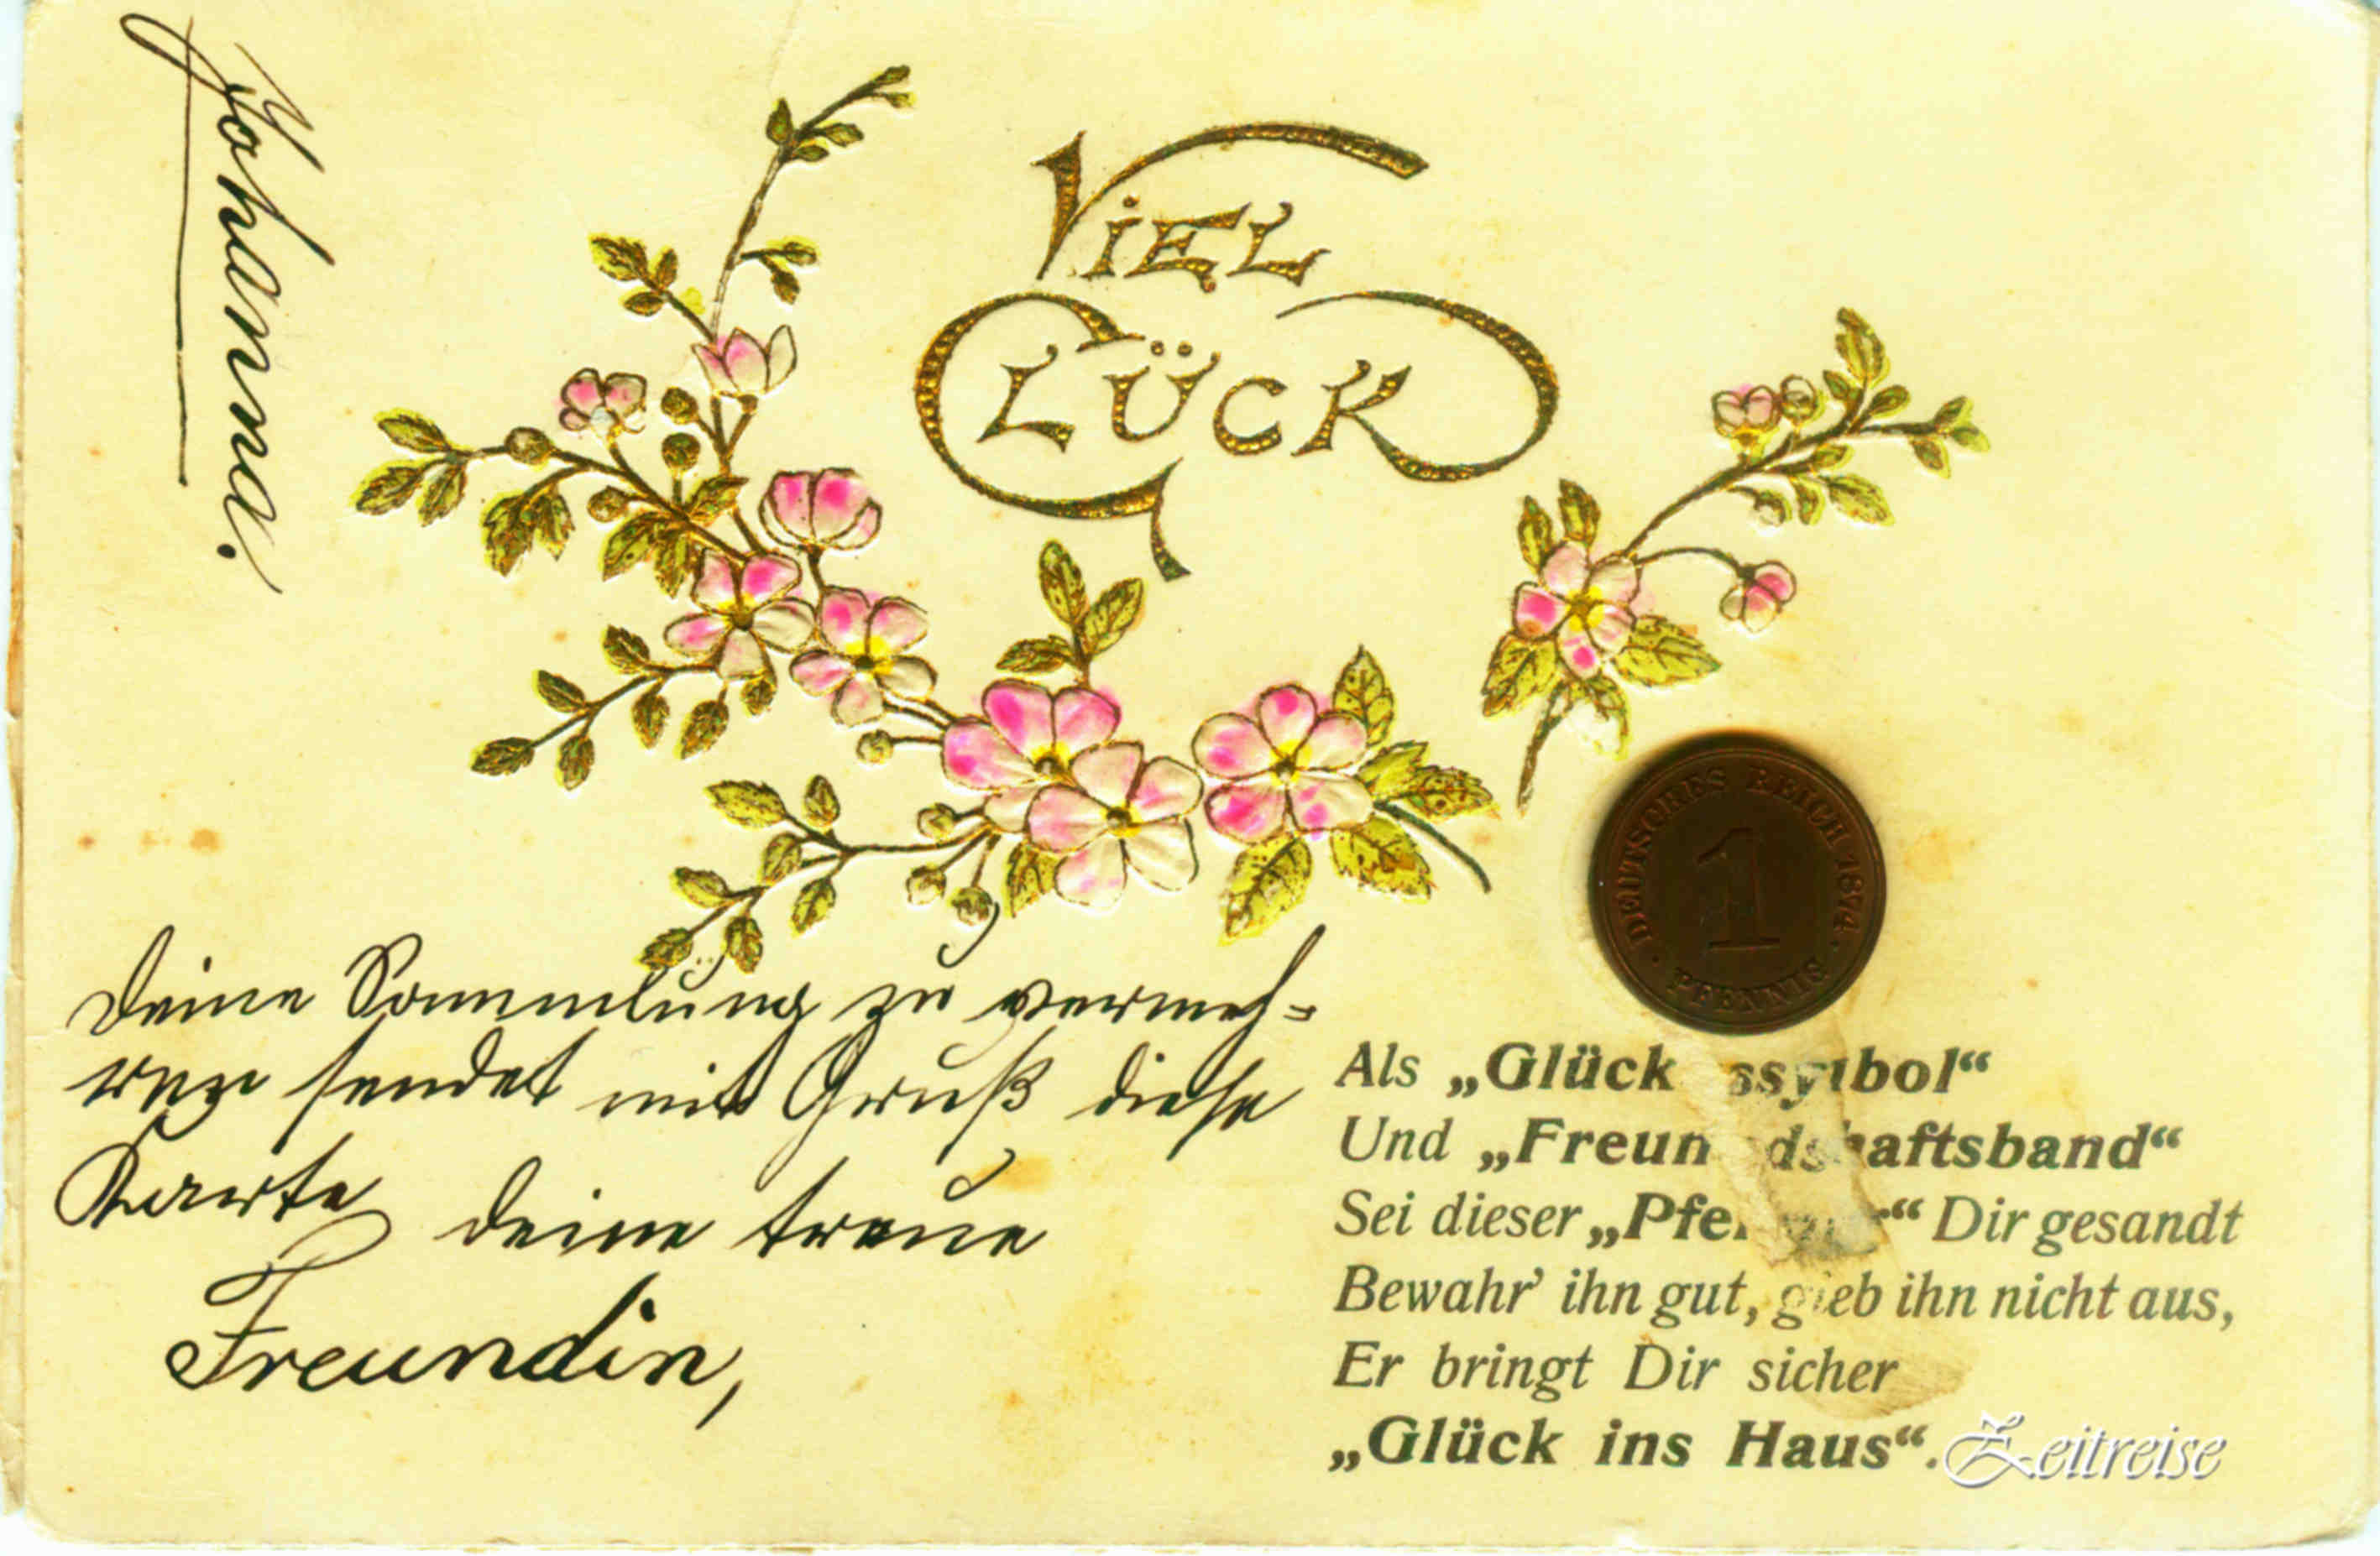 VIEL
GLÜCK
DEUTSCHES REICH 1874
1
PFENNIG
Deine Sammlung zu vermeh=
ren sendet mit Gruß diese
Karte deine treue
Freundin,
Johanna.
Als „Glückssymbol“
Und „Freundschaftsband“
Sei dieser „Pfennig“ Dir gesandt
Bewahr’ ihn gut, gieb ihn nicht aus,
Er bringt Dir sicher
„Glück ins Haus“.
Zeitreise